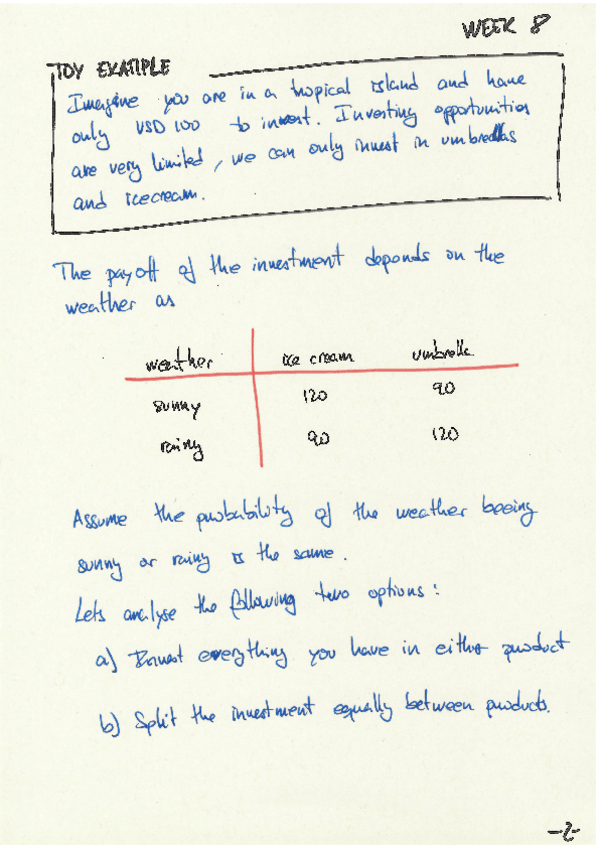 WEEK 8
TOY EXAMPLE
Imagine you are in a tropical island and have
only USD 100 to invest. Investing opportunities
are very limited, we can only invest in umbrellas
and icecream.
The payoff of the investment depends on the
weather as
weather ice cream umbrella
sunny 120 90
rainy 90 120
Assume the probability of the weather beeing
sunny or rainy is the same.
Lets analyse the following two options:
a) Invest everything you have in either product
b) Split the investment equally between products.
-2-